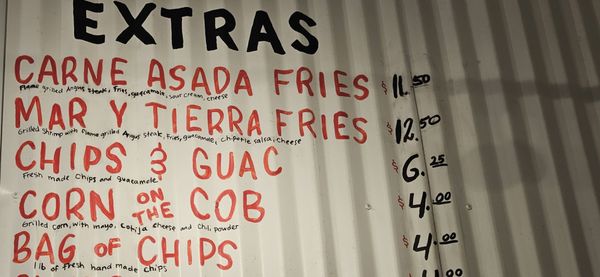 EXTRAS
CARNE ASADA FRIES $11.50
Flame grilled Angus steak, fries, guacamole, sour cream, cheese
MAR Y TIERRA FRIES $12.50
Grilled Shrimp with flame grilled Angus steak, fries, guacamole, chipotle salsa, cheese
CHIPS & GUAC $6.25
Fresh made chips and guacamole
CORN ON THE COB $4.00
Grilled corn, with mayo, Cotija cheese and chili powder
BAG OF CHIPS $4.00
1 lb of fresh hand made chips